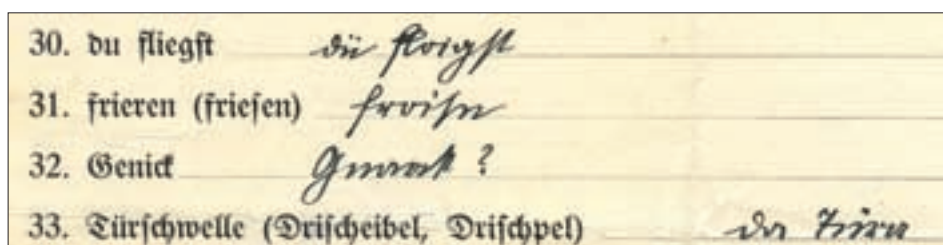 30. du fliegst dü floigst
31. frieren (friesen) froisn
32. Genick Gnack ?
33. Türschwelle (Drischeibel, Drischpel) da